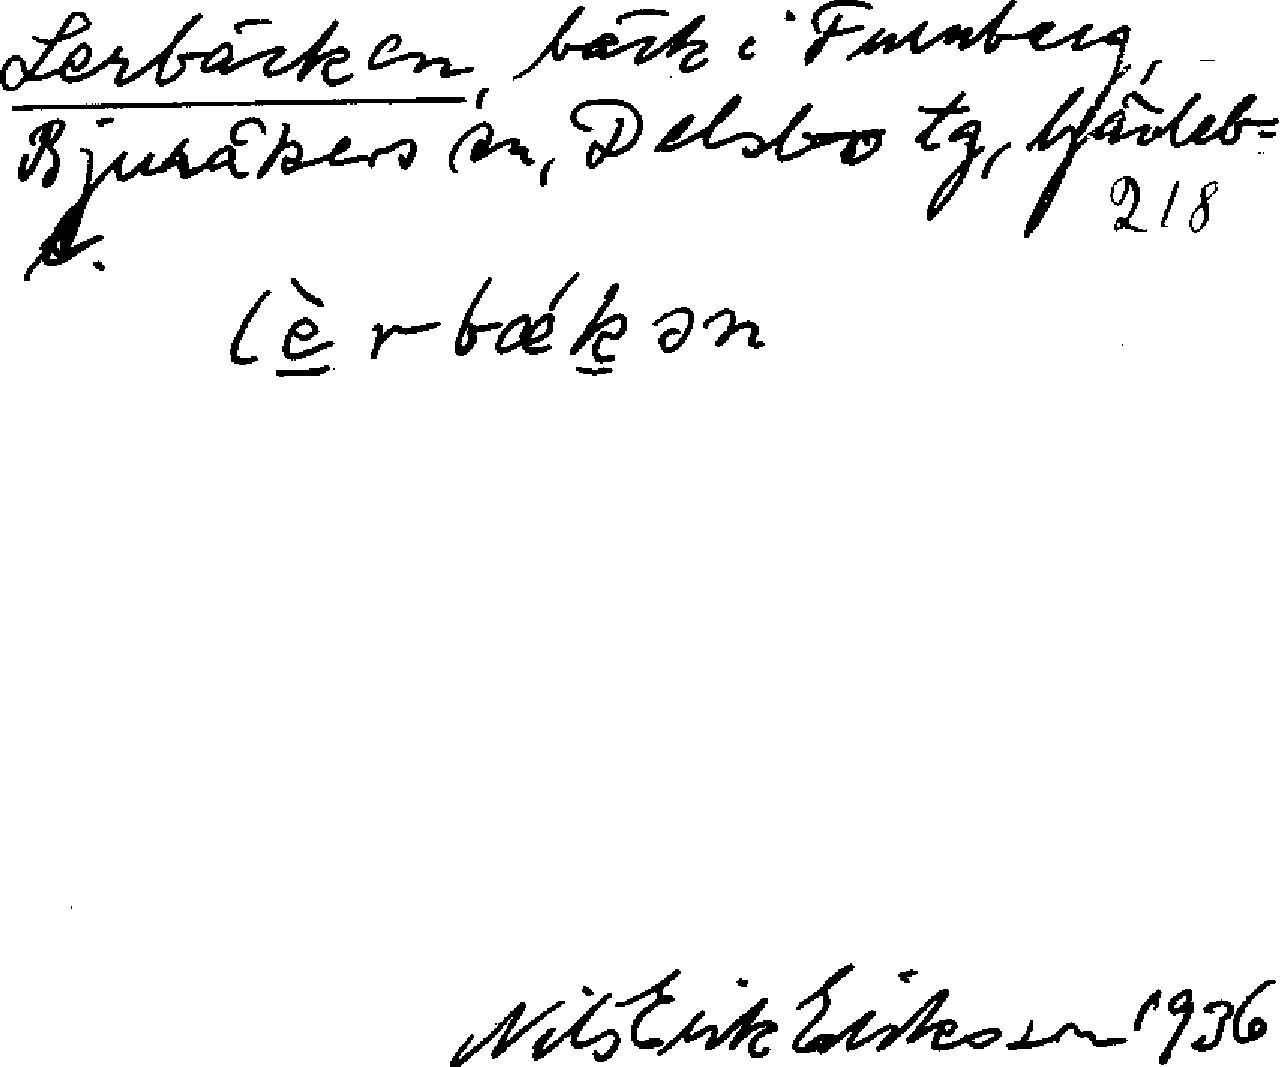 Lerbäcken, bäck i Furuberg,
Bjuråkers sn, Delsbo tg, Gävleb-
l.
218
lèrbækən
Nils Erik Eriksson 1936